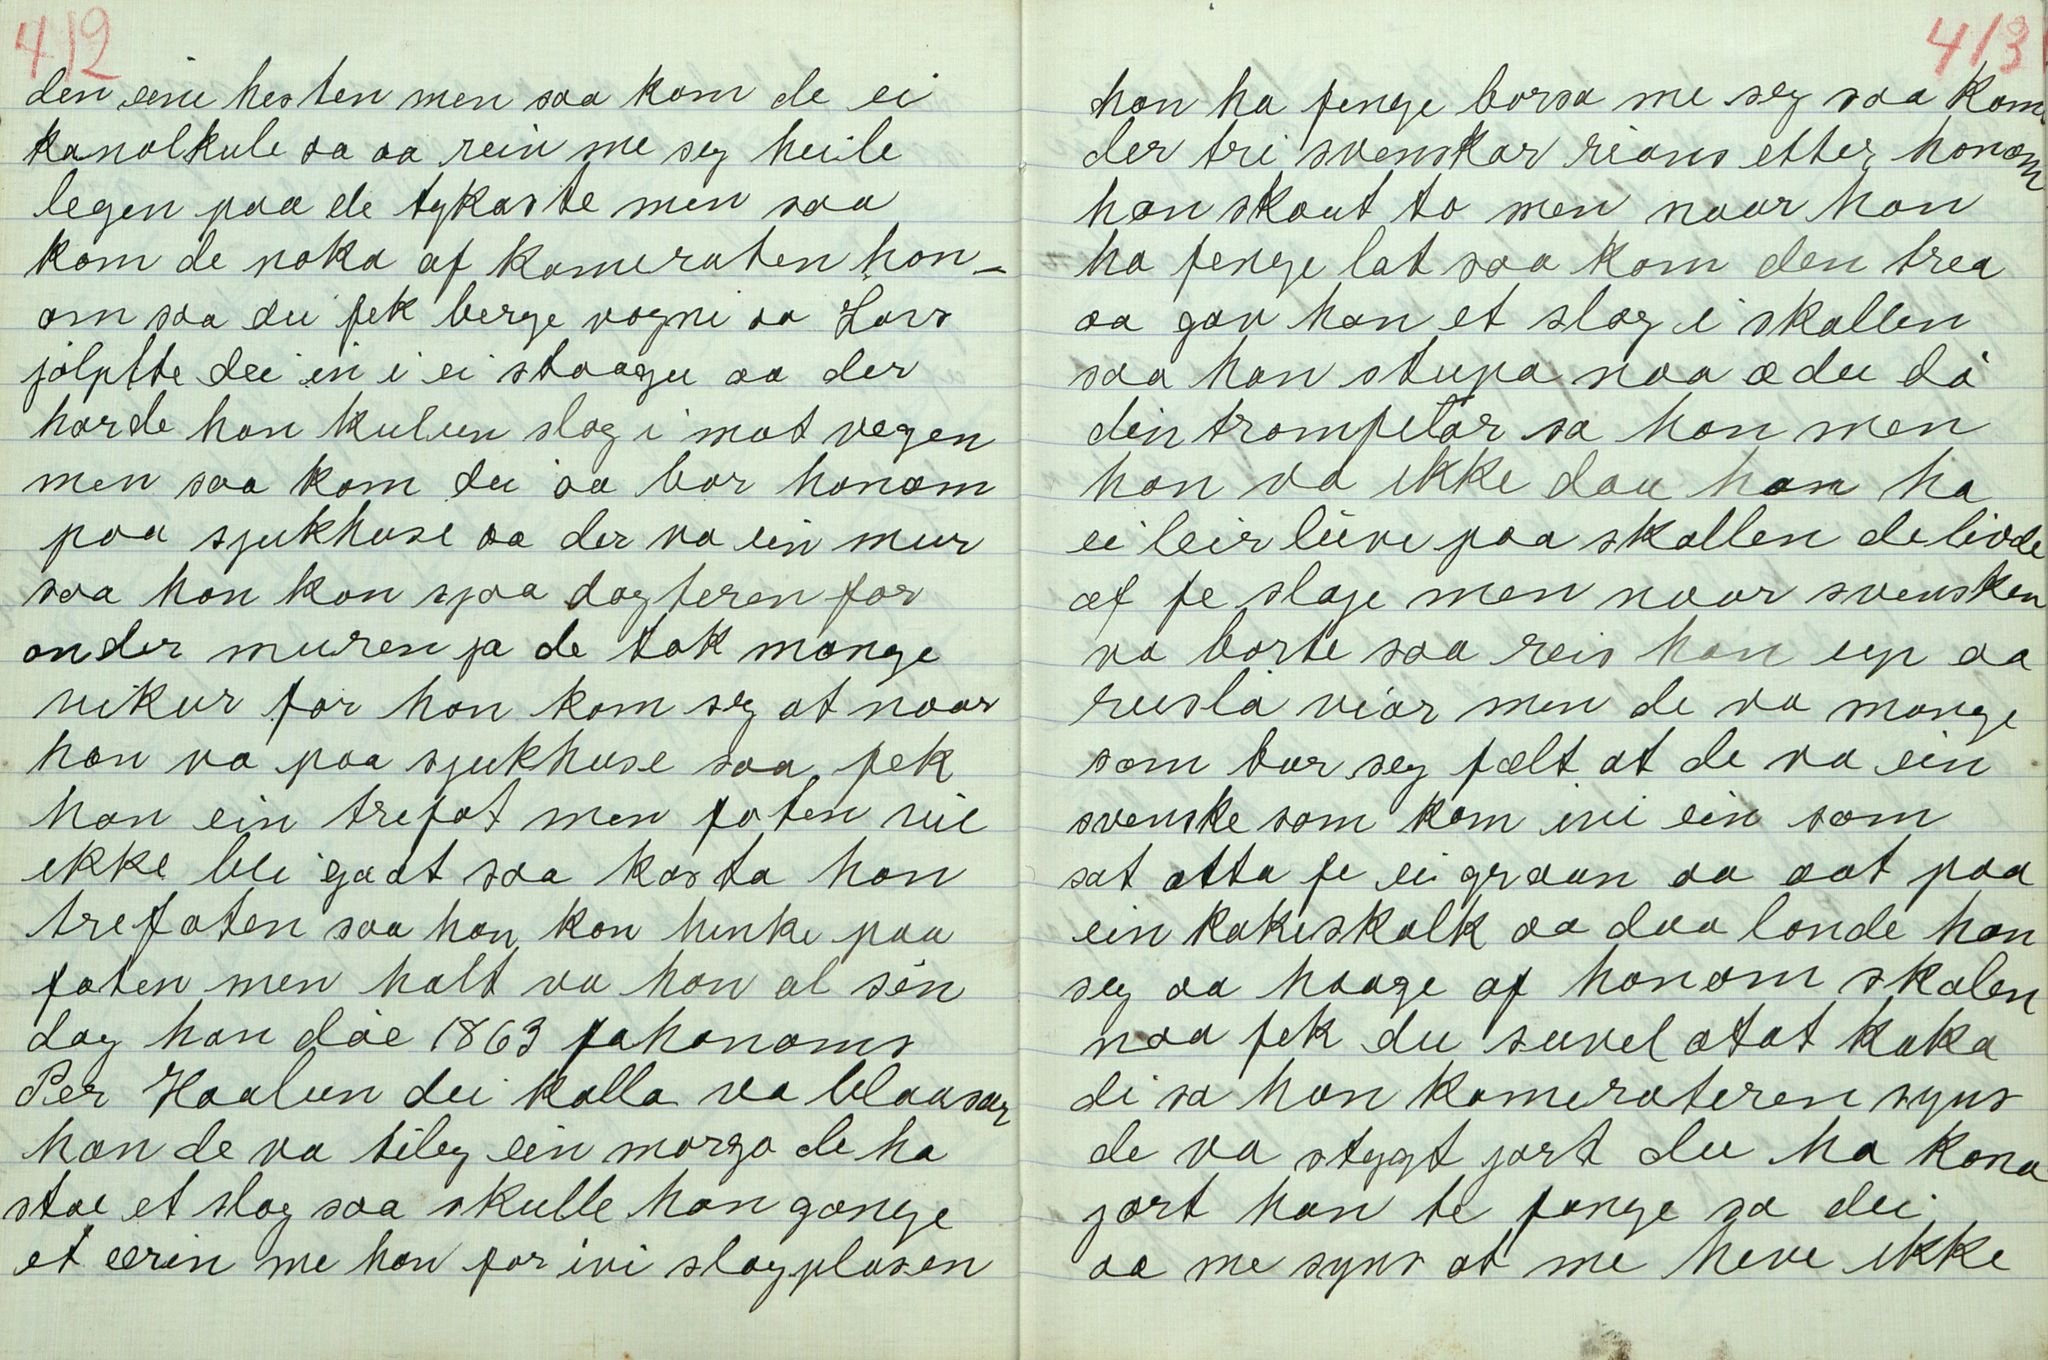 412
den eine hesten men saa kom de ei
kanolkule sa aa rein me seg heile
legen paa de tykaste men saa
kom de noka af kameraten hon-
om saa dei fek berge vogni aa Lars
jolptte dei in i ei staagu aa der
horde han kulun slog i mot vegen
men saa kom dei aa bar honom
paa sjukhuse aa der va ein mur
saa han kon sjaa dogteren for
onder muren ja de tok mange
vikur for han kom seg at naar
han va paa sjukhuse saa fek
han ein trefot men foten vil
ikke bli gaat saa kasta han
trefoten saa han kon hinke paa
foten men halt va han al sin
dag han dåe 1863 fahonoms
Per Haalun dei kalla va blaasar
han de va tileg ein morgo de ha
stae et slag saa skulle han gange
et ærin me han for ivi slagplasen
413
han ha fenge borsa me seg saa kom
der tri svenskar rians etter honom
han skaut to men naar han
ha fenge lat saa kom den trea
aa gav han et slag i skallen
saa han stupa naa æ du då
din trompetar sa han men
han va ikke dau han ha
ei leirlüve paa skallen de livde
af fe slage men naar svensken
va borte saa reis han up aa
rusla viår men de va mange
som bar seg fælt at de va ein
svenske som kom ivi ein som
sat atta fe ei graan aa aat paa
ein kakeskalk aa daa londe han
seg aa haage af honom skalen
naa fek du suvel atat kaka
di sa han kameråteren syns
de va stygt jort du ha kona
jort han te fange sa dei
aa me syns at me heve ikke